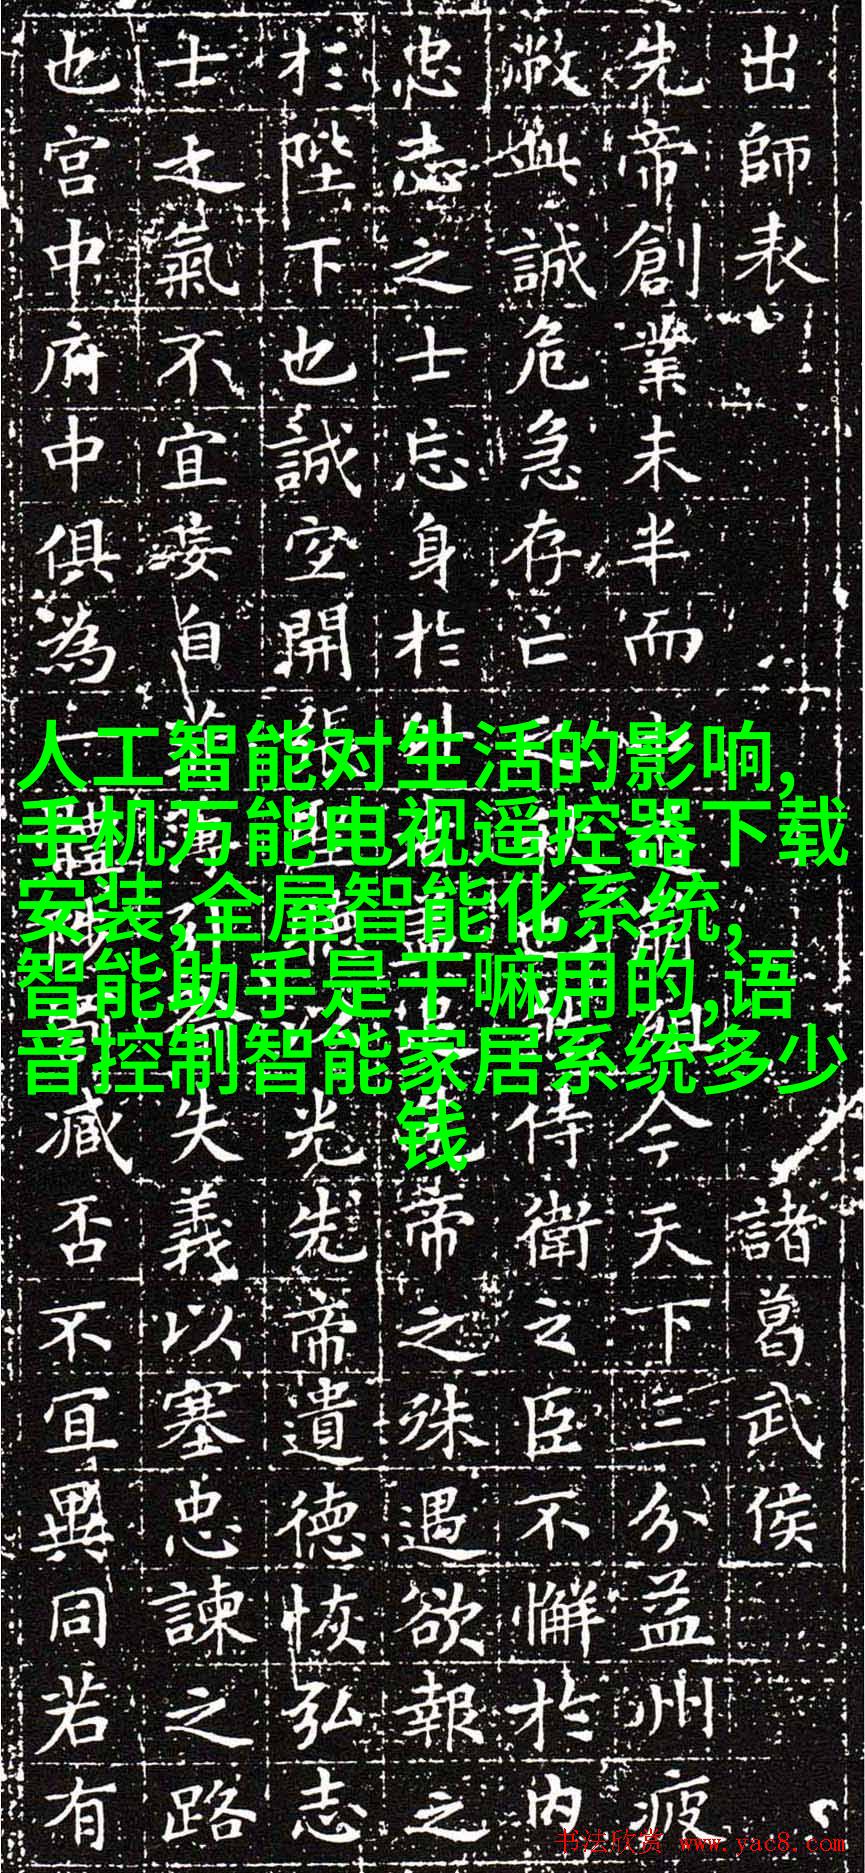 出師表
諸葛武侯
先帝創業未半而
今天下三分益州疲
敝此誠危急存亡
侍衛之臣不懈於內
忠志之士忘身於外
先帝之殊遇欲報之
於陛下也誠宜開張聖
光先帝遺德恢弘志
士之氣不宜妄自
失義以塞忠諫之路
也宮中府中俱為一體
臧否不宜異同若有
人工智能对生活的影响,
手机万能电视遥控器下载
安装,全屋智能化系统,
智能助手是干嘛用的,语
音控制智能家居系统多少
钱
书法欣赏 www.yac8.com